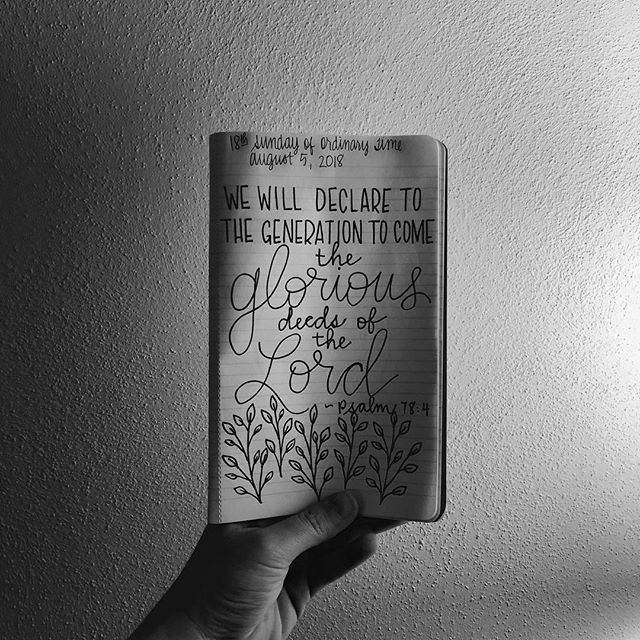 18th Sunday of Ordinary Time
August 5, 2018
WE WILL DECLARE TO
THE GENERATION TO COME
the
glorious
deeds of
the
Lord
~ Psalm 78:4